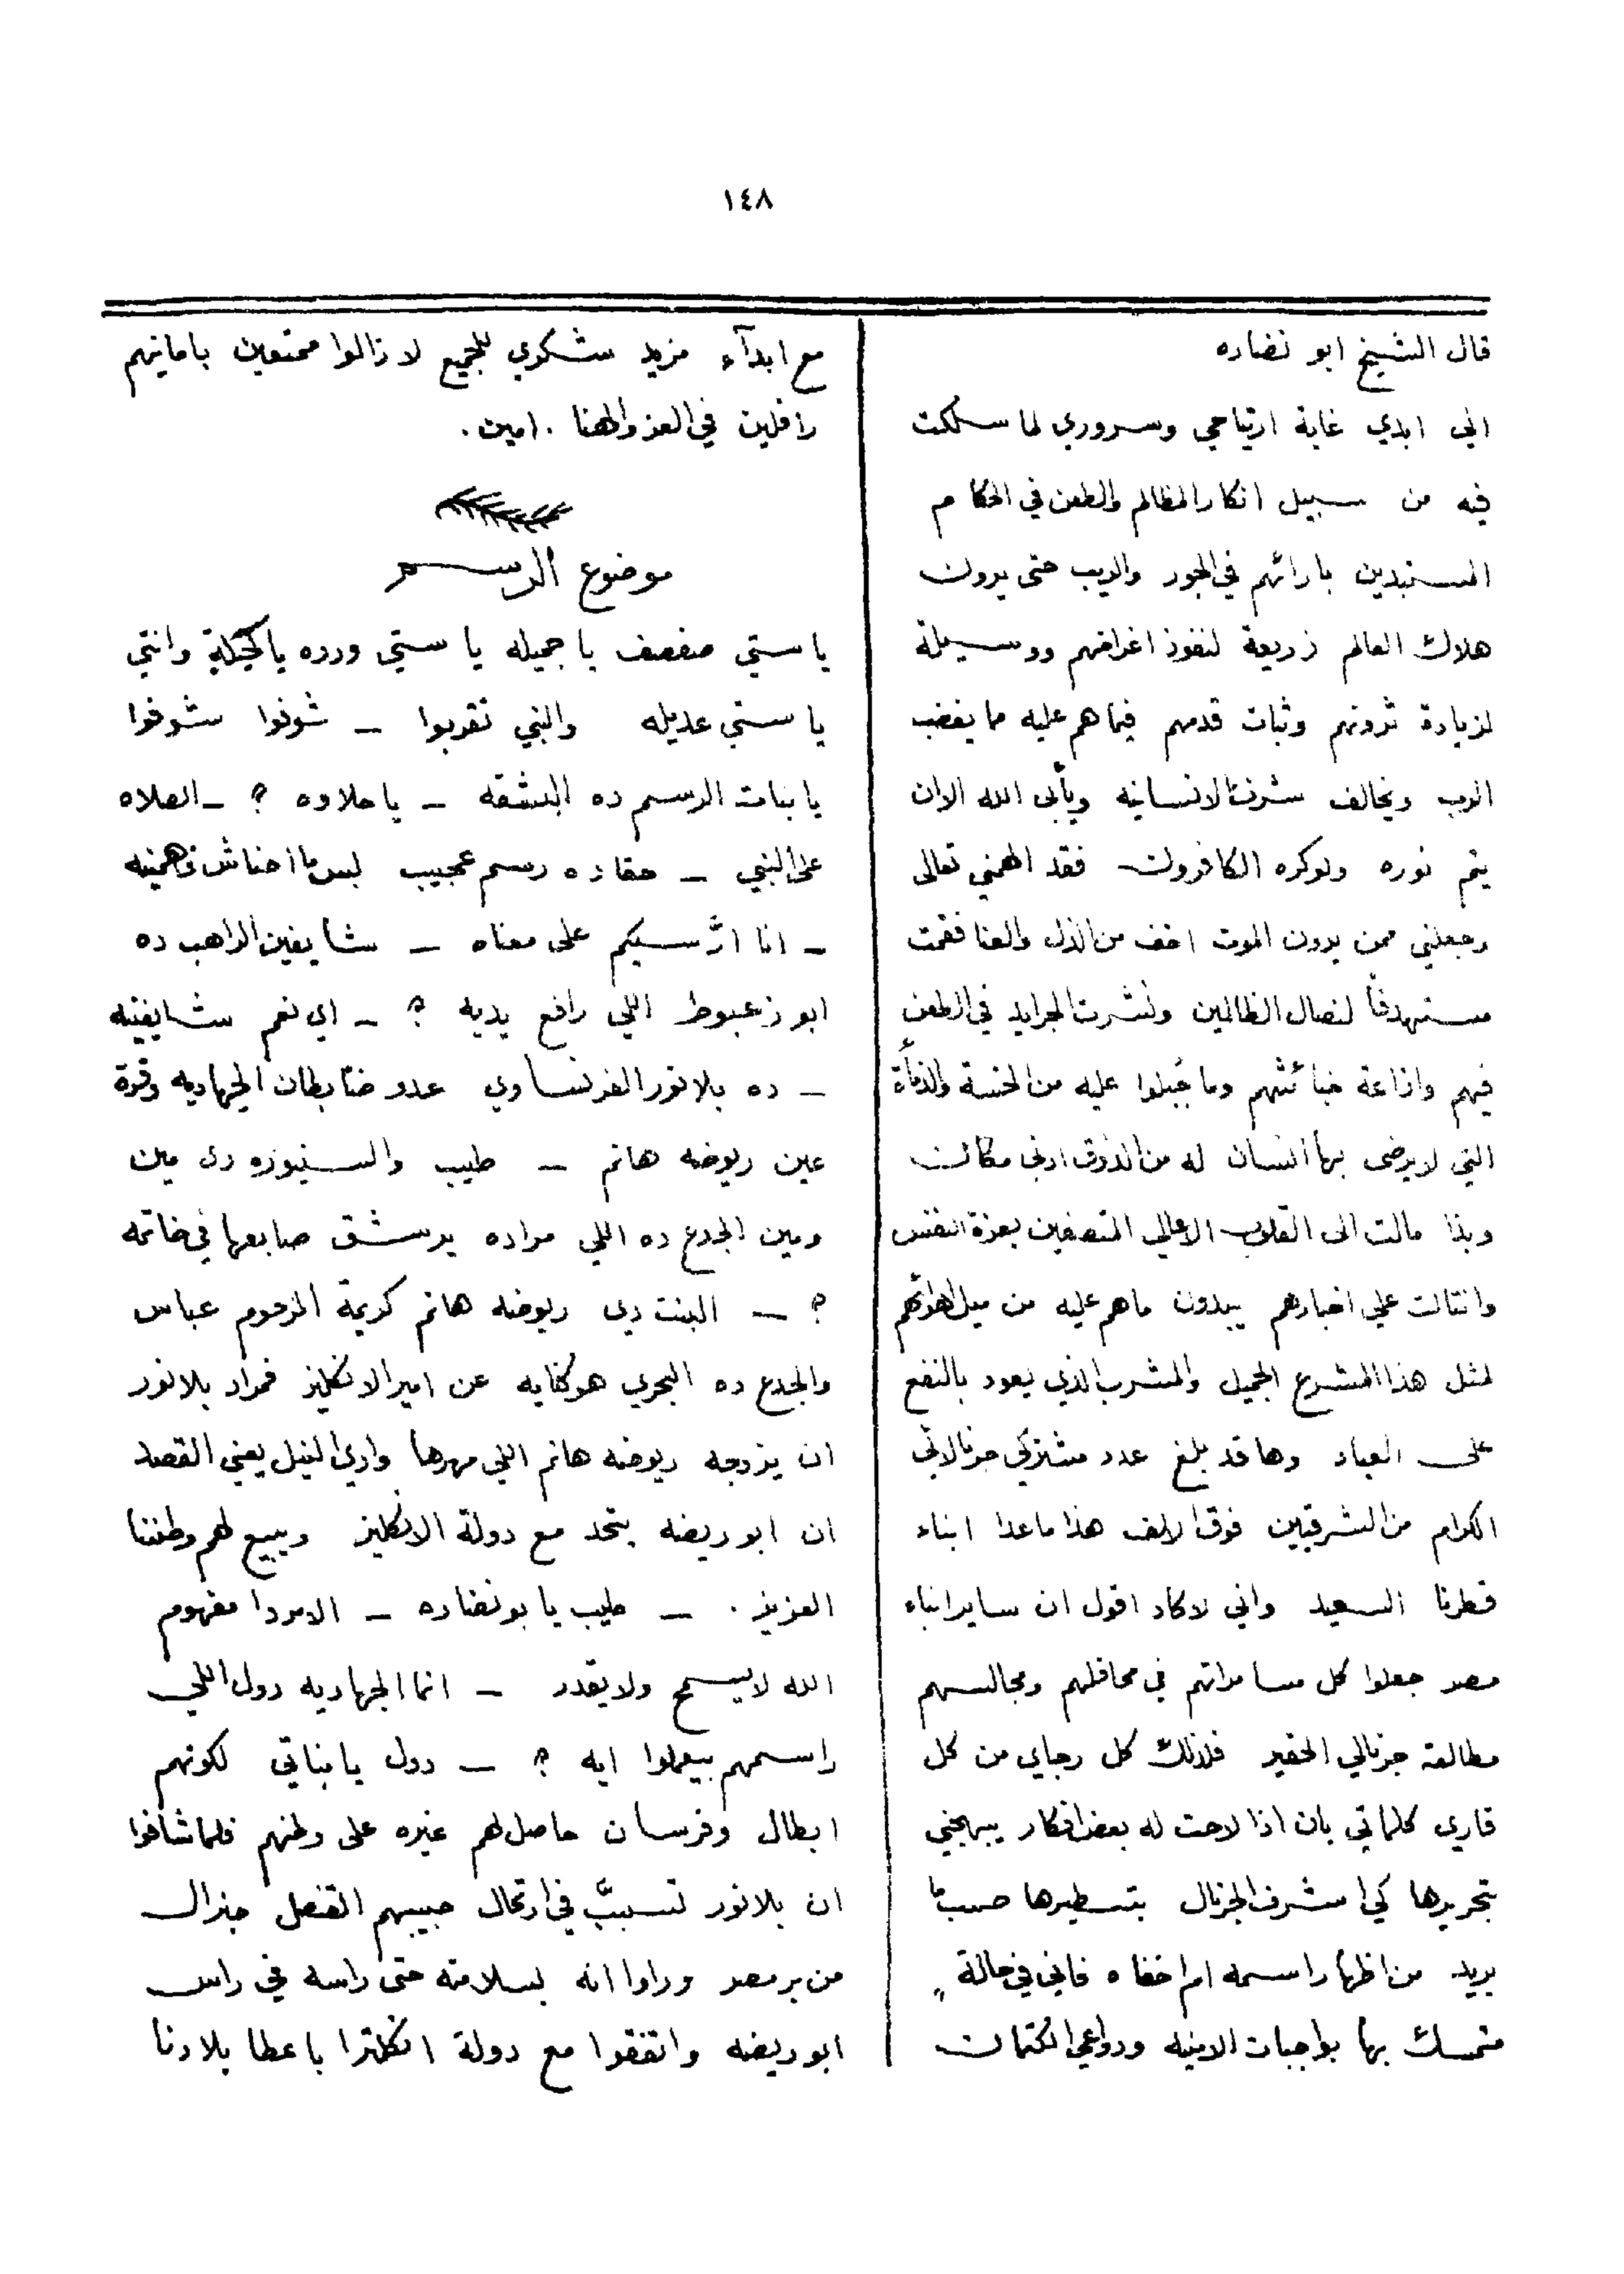 ١٤٨
قال الشيخ ابو نضاره
اني ابدي غاية ارتياحي وسروري لما سلكت
فيه من سبيل انكار المظالم والطعن في الحكام
المستبدين بارائهم في الجور والريب حتى يرون
هلاك العالم زريعة لنفوذ اغراضهم ووسيلة
لزيادة ثروتهم وثبات قدمهم فيما هم عليه مما يغضب
الرب ويخالف شرف الانسانيه ويأبى الله الا ان
يتم نوره ولو كره الكافرون فقد الهمني تعالى
وجعلني ممن يرون الموت اخف من الذل والعنا فقمت
مستهدفاً لنصال الظالمين ونشرت الجرايد في الطعن
فيهم واذاعة خبائثهم وما جُبلوا عليه من الخسة والدنأة
التي لا يرضى بها انسان له من الذوق ادنى مكان
وبذا مالت الى القلوب الاعالي المتصفين بعزة النفس
وانثالت علي اخبارهم يبدون ما هم عليه من ميل اهوائهم
لمثل هذا المشرع الجميل والمشرب الذي يعود بالنفع
على العباد وها قد بلغ عدد مشتركي جرنالاتي
الكرام من الشرقيين فوق الالف هذا ما عدا ابناء
قطرنا السعيد واني لاكاد اقول ان ساير ابناء
مصر جعلوا كل مسامراتهم في محافلهم ومجالسهم
مطالعة جرنالي الحقير فلذلك كل رجاي من كل
قاري كلماتي بان اذا لاحت له بعض افكار يبهجني
بتحريرها كي اشرف الجرنال بتسطيرها حسبما
يريد من اظهار اسمه ام اخفاه فاني في حالة
متمسك بها بواجبات الامنيه ودواعي الكتمان
مع ابدآء مزيد شكري للجميع لا زالوا ممتعين بامانيهم
رافلين في العز والهنا . امين .
موضوع الرسم
يا ستي صفصف يا جميله يا ستي ورده يا كحيلة وانتي
يا ستي عديله والنبي تقربوا – شوفوا شوفوا
يا بنات الرسم ده البشقه – يا حلاوه ؟ – الصلاه
على النبي – حقا ده رسم عجيب لبس ما احناش فاهمينه
– انا ارَّسيكم على معناه – شايفين الراهب ده
ابو زعبوط اللي رافع يديه ؟ – اي نعم شايفينه
– ده بلانور الفرنساوي عدو ضابطان الجهاديه وقرة
عين ريوضه هانم – طيب والسنيوره دي مين
ومين الجدع ده اللي مراده يرشق صابعها في خاتمه
؟ – البنت دي ريوضه هانم كريمة المرحوم عباس
والجدع ده البحري هو كنايه عن امير الانكليز فمراد بلانور
ان يزوجه ريوضه هانم اللي مهرها وادي النيل يعني القصد
ان ابو ريضه يتحد مع دولة الانكليز ويبيع لهم وطننا
العزيز . – طيب يا بو نضاره – الامر دا مفهوم
الله لا يسمح ولا يقدر – انما الجهاديه دول اللي
راسمهم بيعملوا ايه ؟ – دول يا بناتي لكونهم
ابطال وفرسان حاصل لهم غيره على وطنهم فلما شافوا
ان بلانور تسببَّ في ارتحال حبيبهم القنصل جنرال
من بر مصر وراوا انه بسلامته حتى راسه في راس
ابو ريضه واتفقوا مع دولة انكلترا باعطا بلادنا